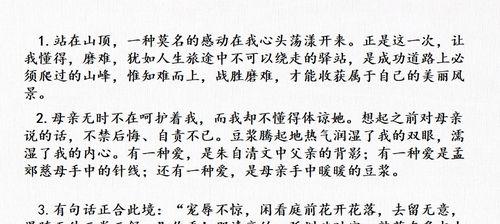 1. 站在山顶，一种莫名的感动在我心头荡漾开来。正是这一次，让
我懂得，磨难，犹如人生旅途中不可以绕走的驿站，是成功道路上必
须爬过的山峰，惟知难而上，战胜磨难，才能收获属于自己的美丽风
景。
2. 母亲无时不在呵护着我，而我却不懂得体谅她。想起之前对母亲
说的话，不禁后悔、自责不已。豆浆腾起地热气润湿了我的双眼，濡
湿了我的内心。有一种爱，是朱自清文中父亲的背影；有一种爱是孟
郊慈母手中的针线；还有一种爱，是母亲手中暖暖的豆浆。
3. 有句话正合此境：“宠辱不惊，闲看庭前花开花落，去留无意，